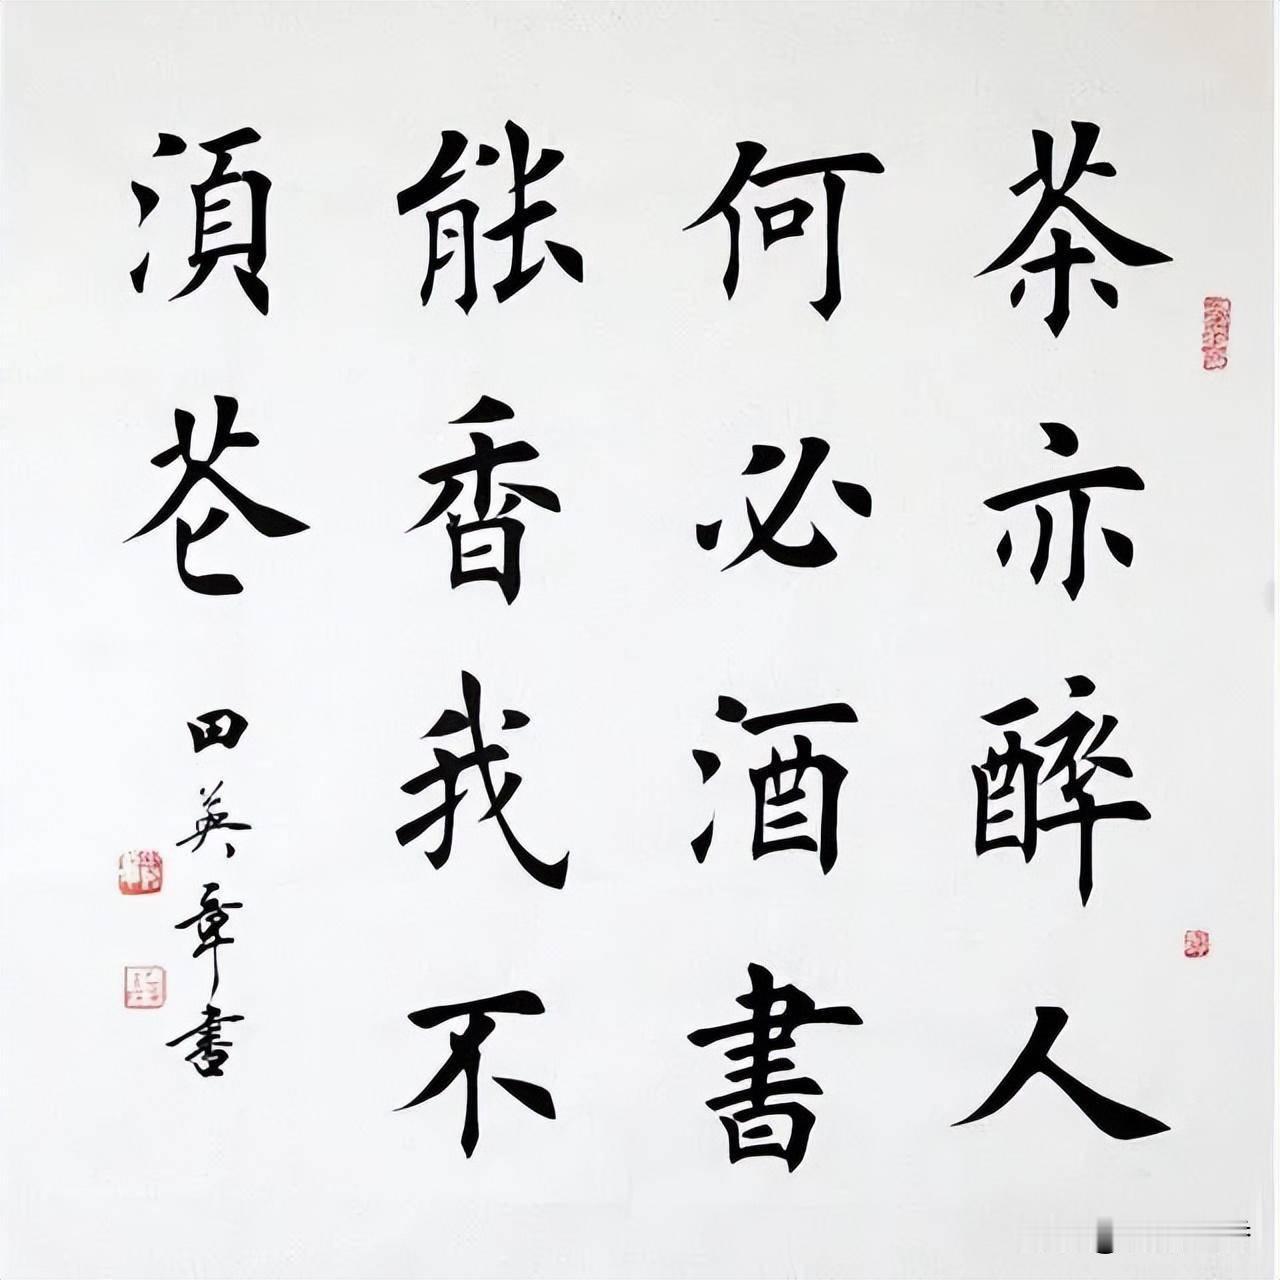 茶亦醉人
何必酒書
能香我不
湏花
田英章書